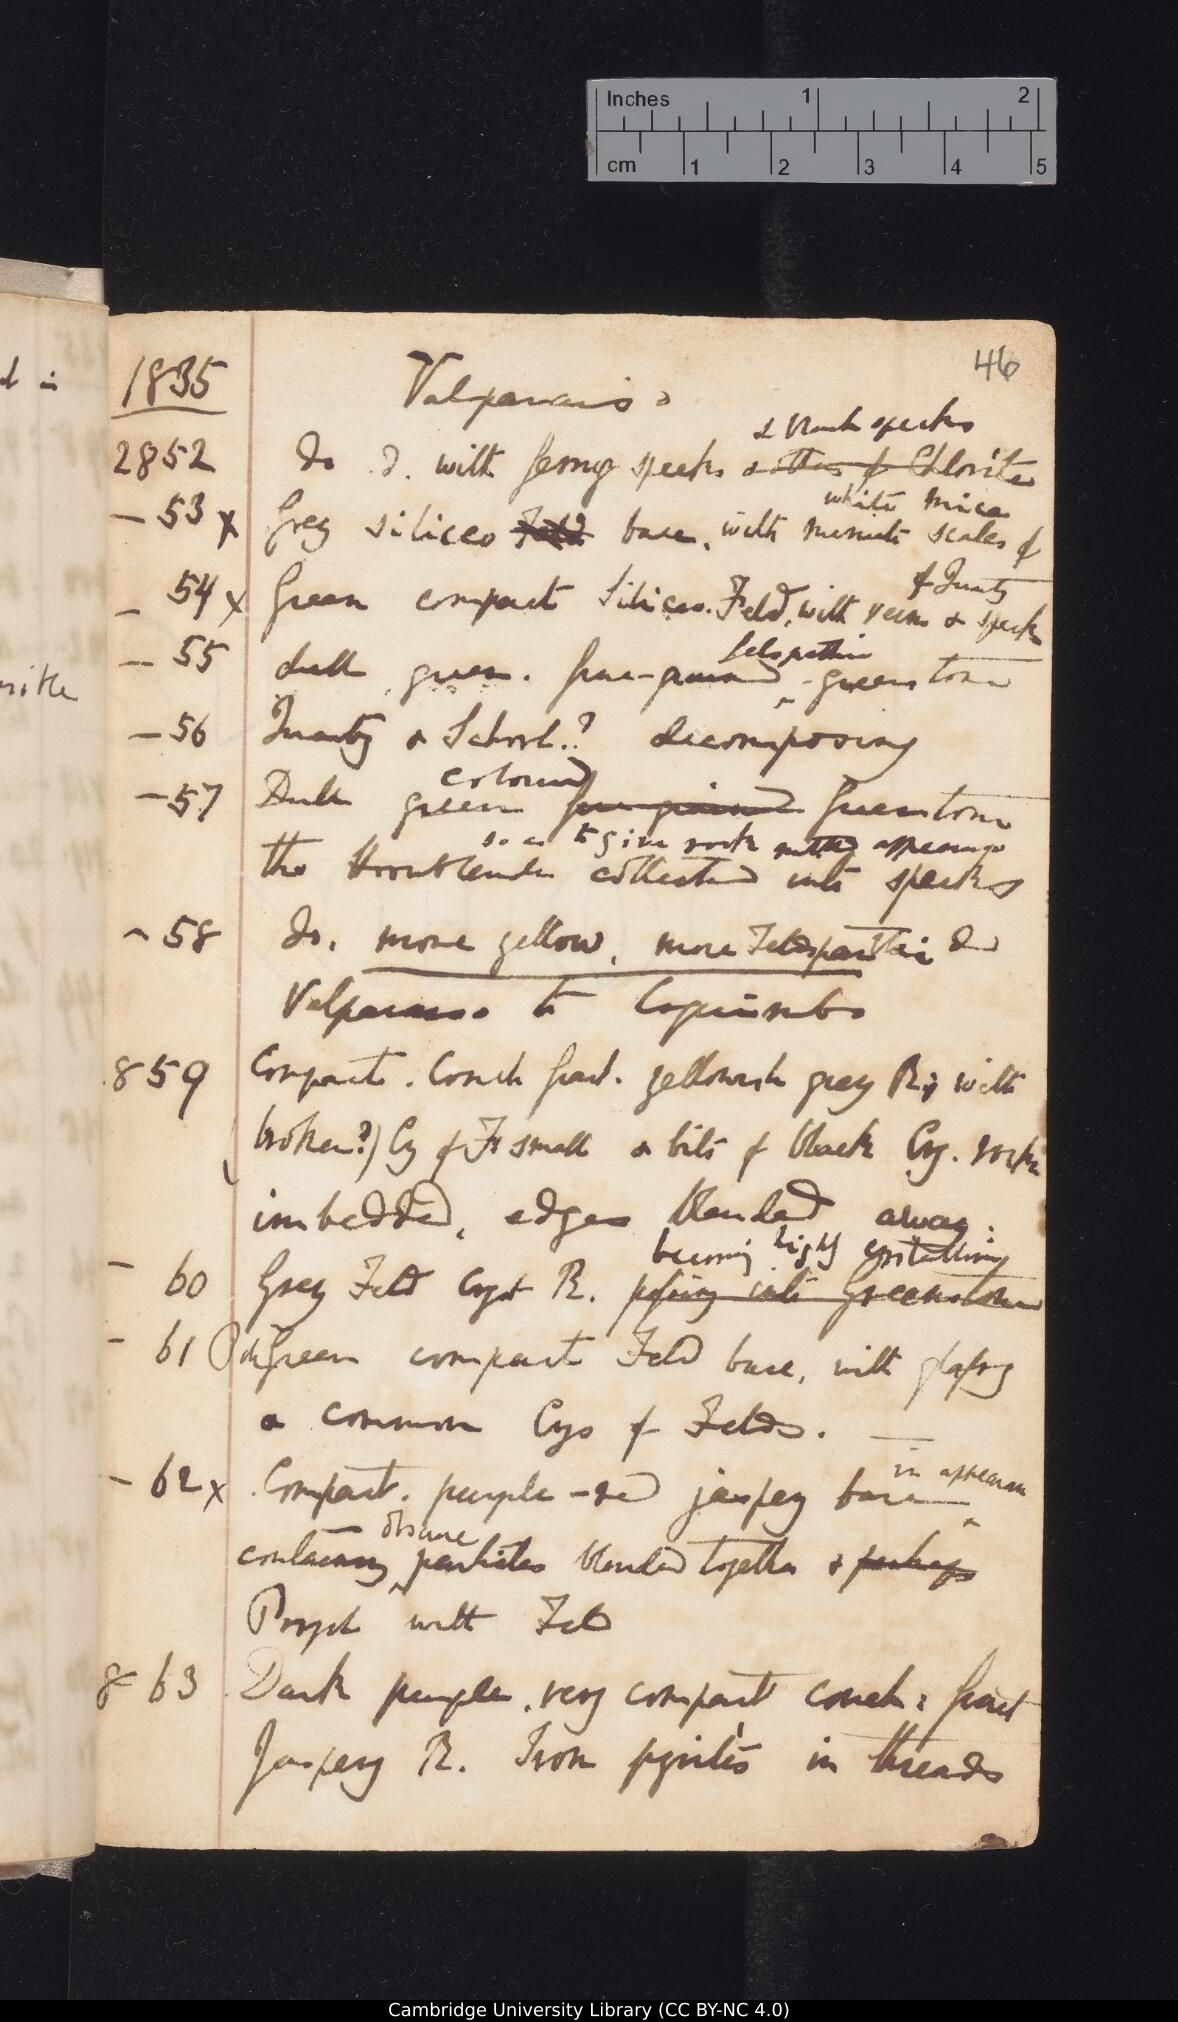 Inches 1 2
cm 1 2 3 4 5
46
1835 Valparaiso
& black specks
2852 do. d. with ferrug specks & others of Chlorite
white mica
— 53 x Grey siliceo Feld base, with minute scales of
of Quartz
— 54 x Green compact Siliceo. Feld, with veins & specks
felspathic
— 55 dull green. fine-grained ^ greenstone
— 56 Quartz & Schorl.? decomposing
coloured
— 57 Dull green fine grained Greenstone
so as to give rock appearance
the Hornblende collected into specks
— 58 do. more yellow, more Feldspathic do
Valparaiso to Coquimbo
859 Compact. Conch fract. yellowish grey R; with
broken?) Cry of F: small & bits of black Cry. rocks
imbedded, edges blended away.
becoming highly crystalline
— 60 Grey Feld Cryst R. passing into Greenstone
— 61 Green compact Feld base, with glassy
& common Crys of Felds. —
in appearan
— 62 x Compact. purple-red jaspery base ^
obscure
containing ^ particles blended together & perhaps
Porph with Feld
8 63 Dark purple, very compact conch: fract
Jaspery R. Iron pyrites in threads
Cambridge University Library (CC BY-NC 4.0)